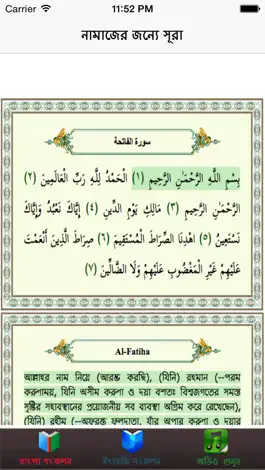 Carrier
11:52 PM
নামাজের জন্যে সূরা
سورة الفاتحة
بِسْمِ اللَّهِ الرَّحْمَٰنِ الرَّحِيمِ (١) الْحَمْدُ لِلَّهِ رَبِّ الْعَالَمِينَ (٢)
الرَّحْمَٰنِ الرَّحِيمِ (٣) مَالِكِ يَوْمِ الدِّينِ (٤) إِيَّاكَ نَعْبُدُ وَإِيَّاكَ
نَسْتَعِينُ (٥) اهْدِنَا الصِّرَاطَ الْمُسْتَقِيمَ (٦) صِرَاطَ الَّذِينَ أَنْعَمْتَ
عَلَيْهِمْ غَيْرِ الْمَغْضُوبِ عَلَيْهِمْ وَلَا الضَّالِّينَ (٧)
Al-Fatiha
আল্লাহর নাম নিয়ে (আরম্ভ করছি), (যিনি) রহমান (--পরম
করুণাময়, যিনি অসীম করুণা ও দয়া বশতঃ বিশ্বজগতের সমস্ত
সৃষ্টির সহাবস্থানের প্রয়োজনীয় সব ব্যবস্থা অগ্রিম করে রেখেছেন),
(যিনি) রহীম (--অফুরন্ত ফলদাতা, যাঁর অপার করুণা ও দয়ার
বাংলা সংকলন
ইংরেজি সংকলন
অডিও শুনুন